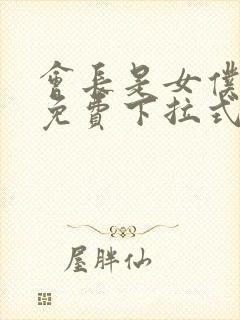 會長是女僕
免費下拉式
屋胖仙